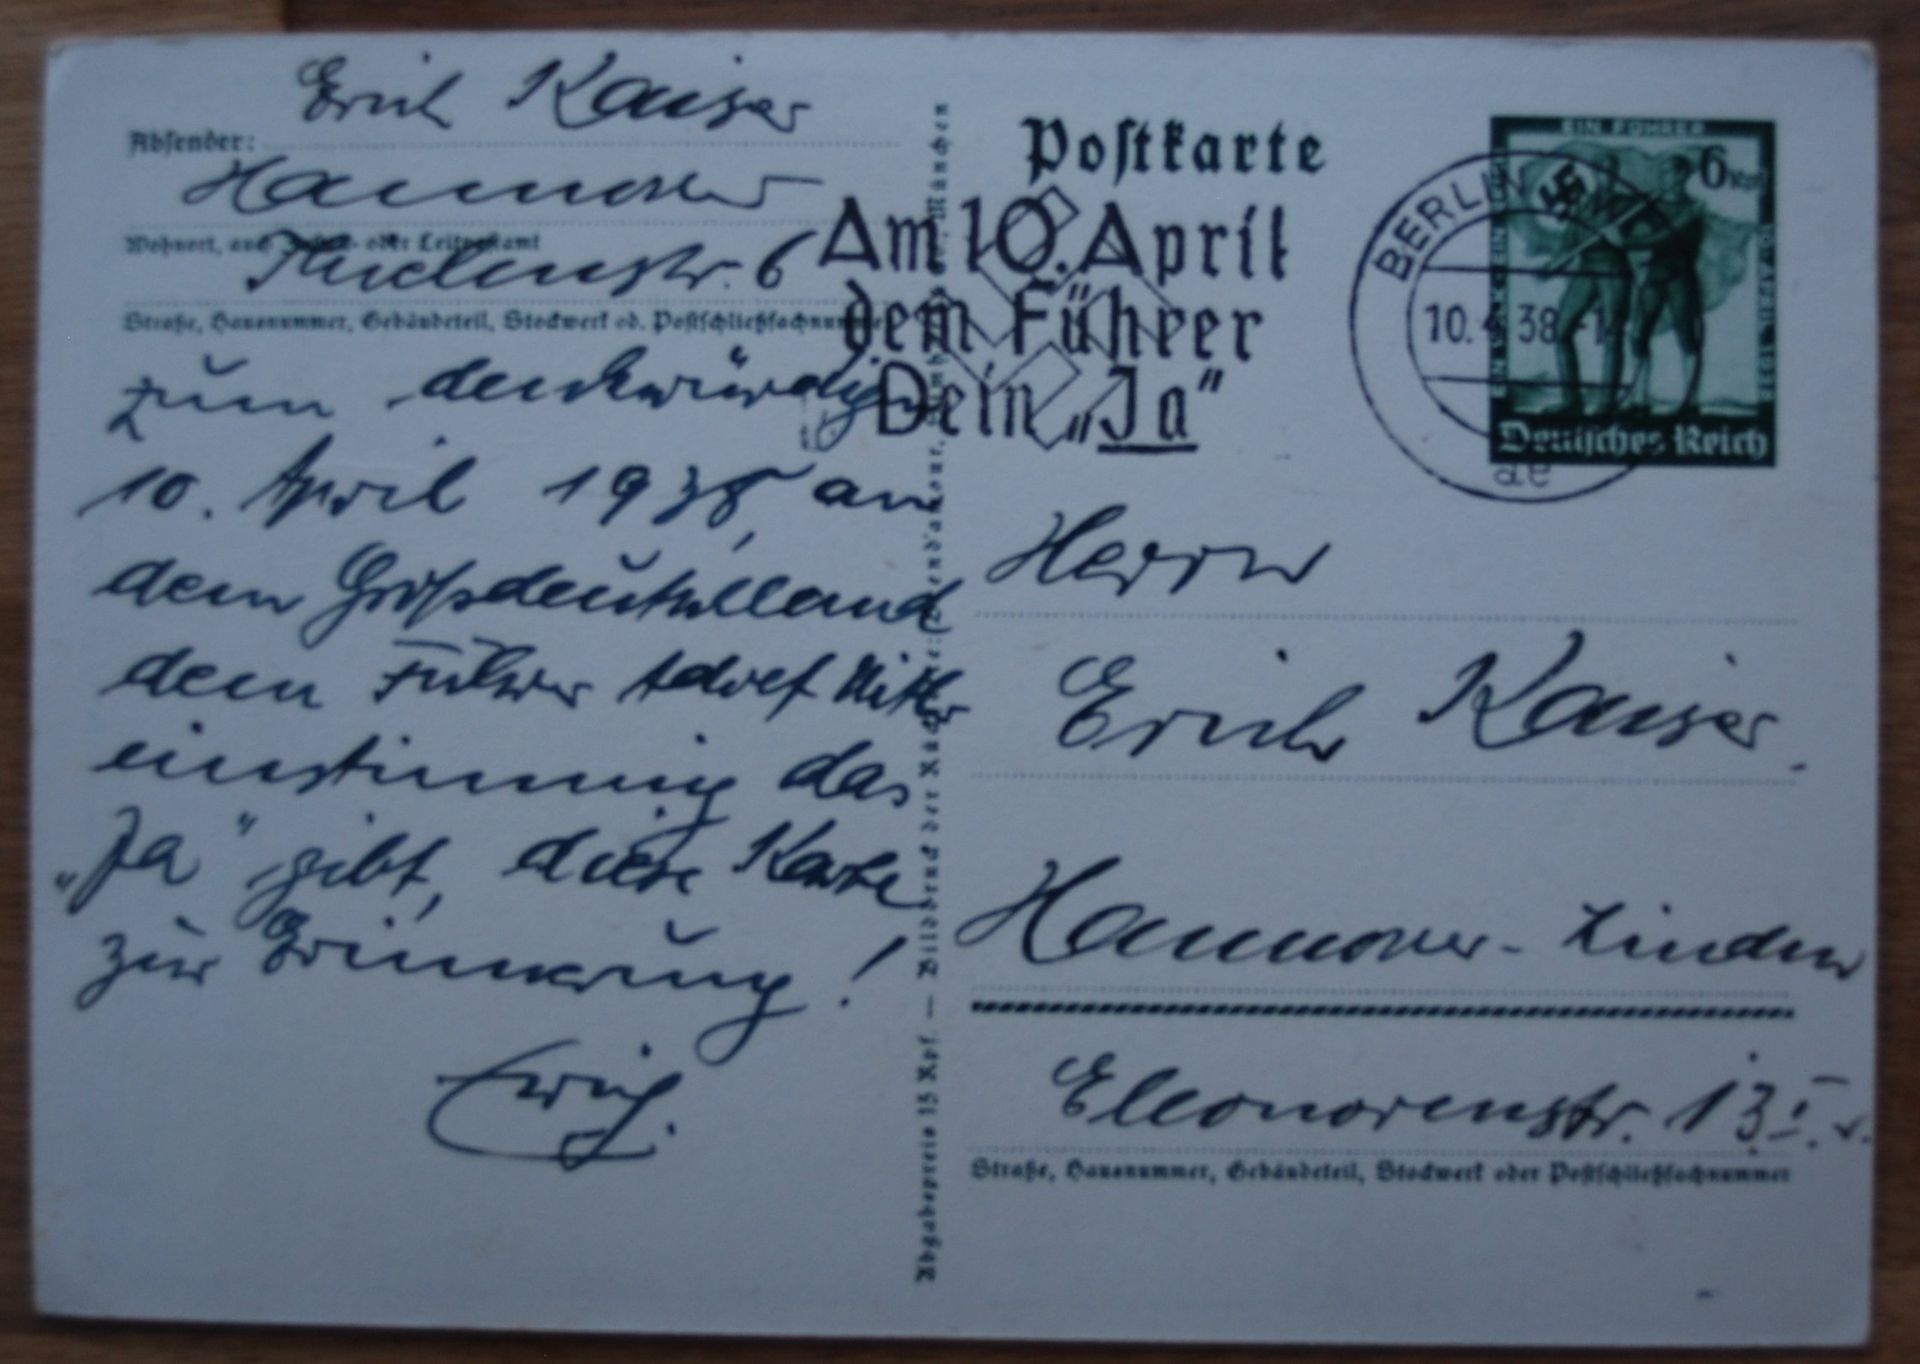 Erich Kaiser
Absender:
Hannover
Wohnort, auch Zustell- oder Leitpostamt
6
Straße, Hausnummer, Gebäudeteil, Stockwerk od. Postschließfachnummer
zum denkwürdigen
10. April 1938, an
dem Großdeutschland
dem Führer Adolf Hitler
einstimmig das
„Ja" gibt, diese Karte
zur Erinnerung!
Erich.
Abgabepreis 15 Rpf. — Bilddruck der
München
Postkarte
Am 10. April
dem Führer
Dein „Ja"
BERLIN SW
10.4.38
ae
EIN FÜHRER
6 Rpf
EIN VOLK EIN REICH
10. APRIL 1938
Deutsches Reich
Herrn
Erich Kaiser.
Hannover-Linden
Eleonorenstr. 13 I. r.
Straße, Hausnummer, Gebäudeteil, Stockwerk oder Postschließfachnummer